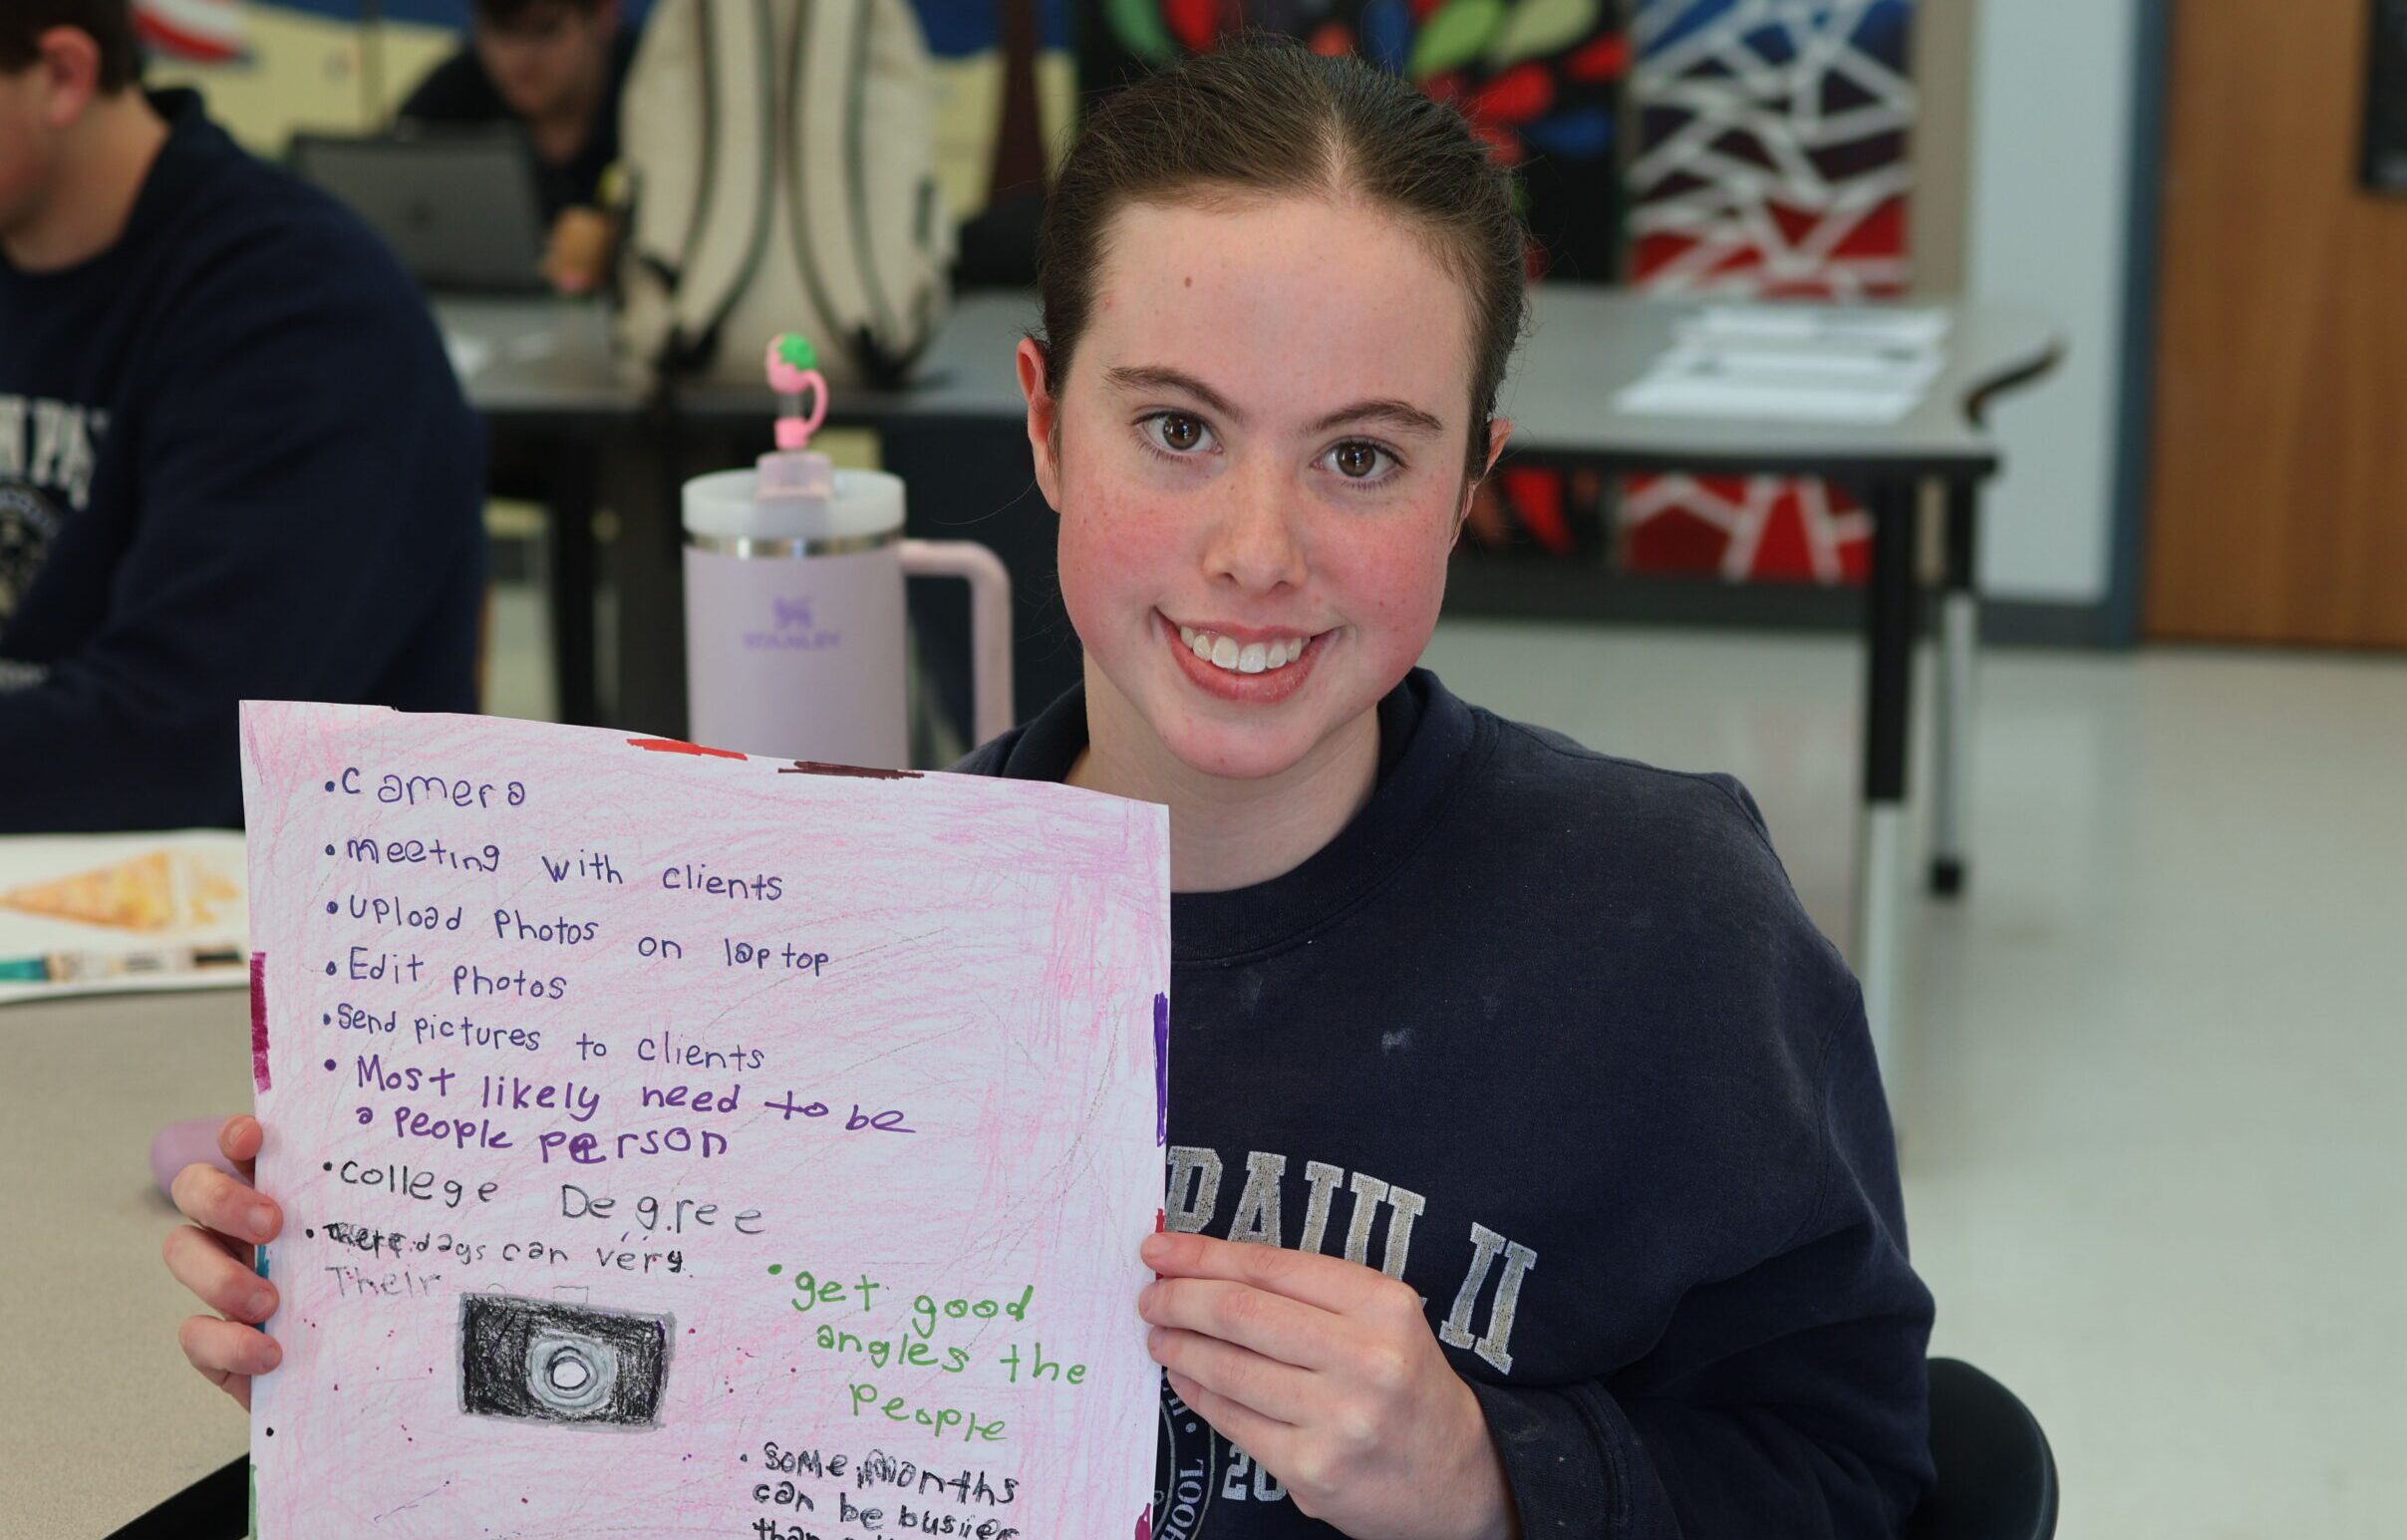 • camera
• meeting with clients
• upload photos on laptop
• Edit photos
• Send pictures to clients
• Most likely need to be
a people person
• college Degree
• days can very
Their
• get good
angles the
people
• some months
can be busier
than
STANLEY
PAUL II
HOOL
20
N PA